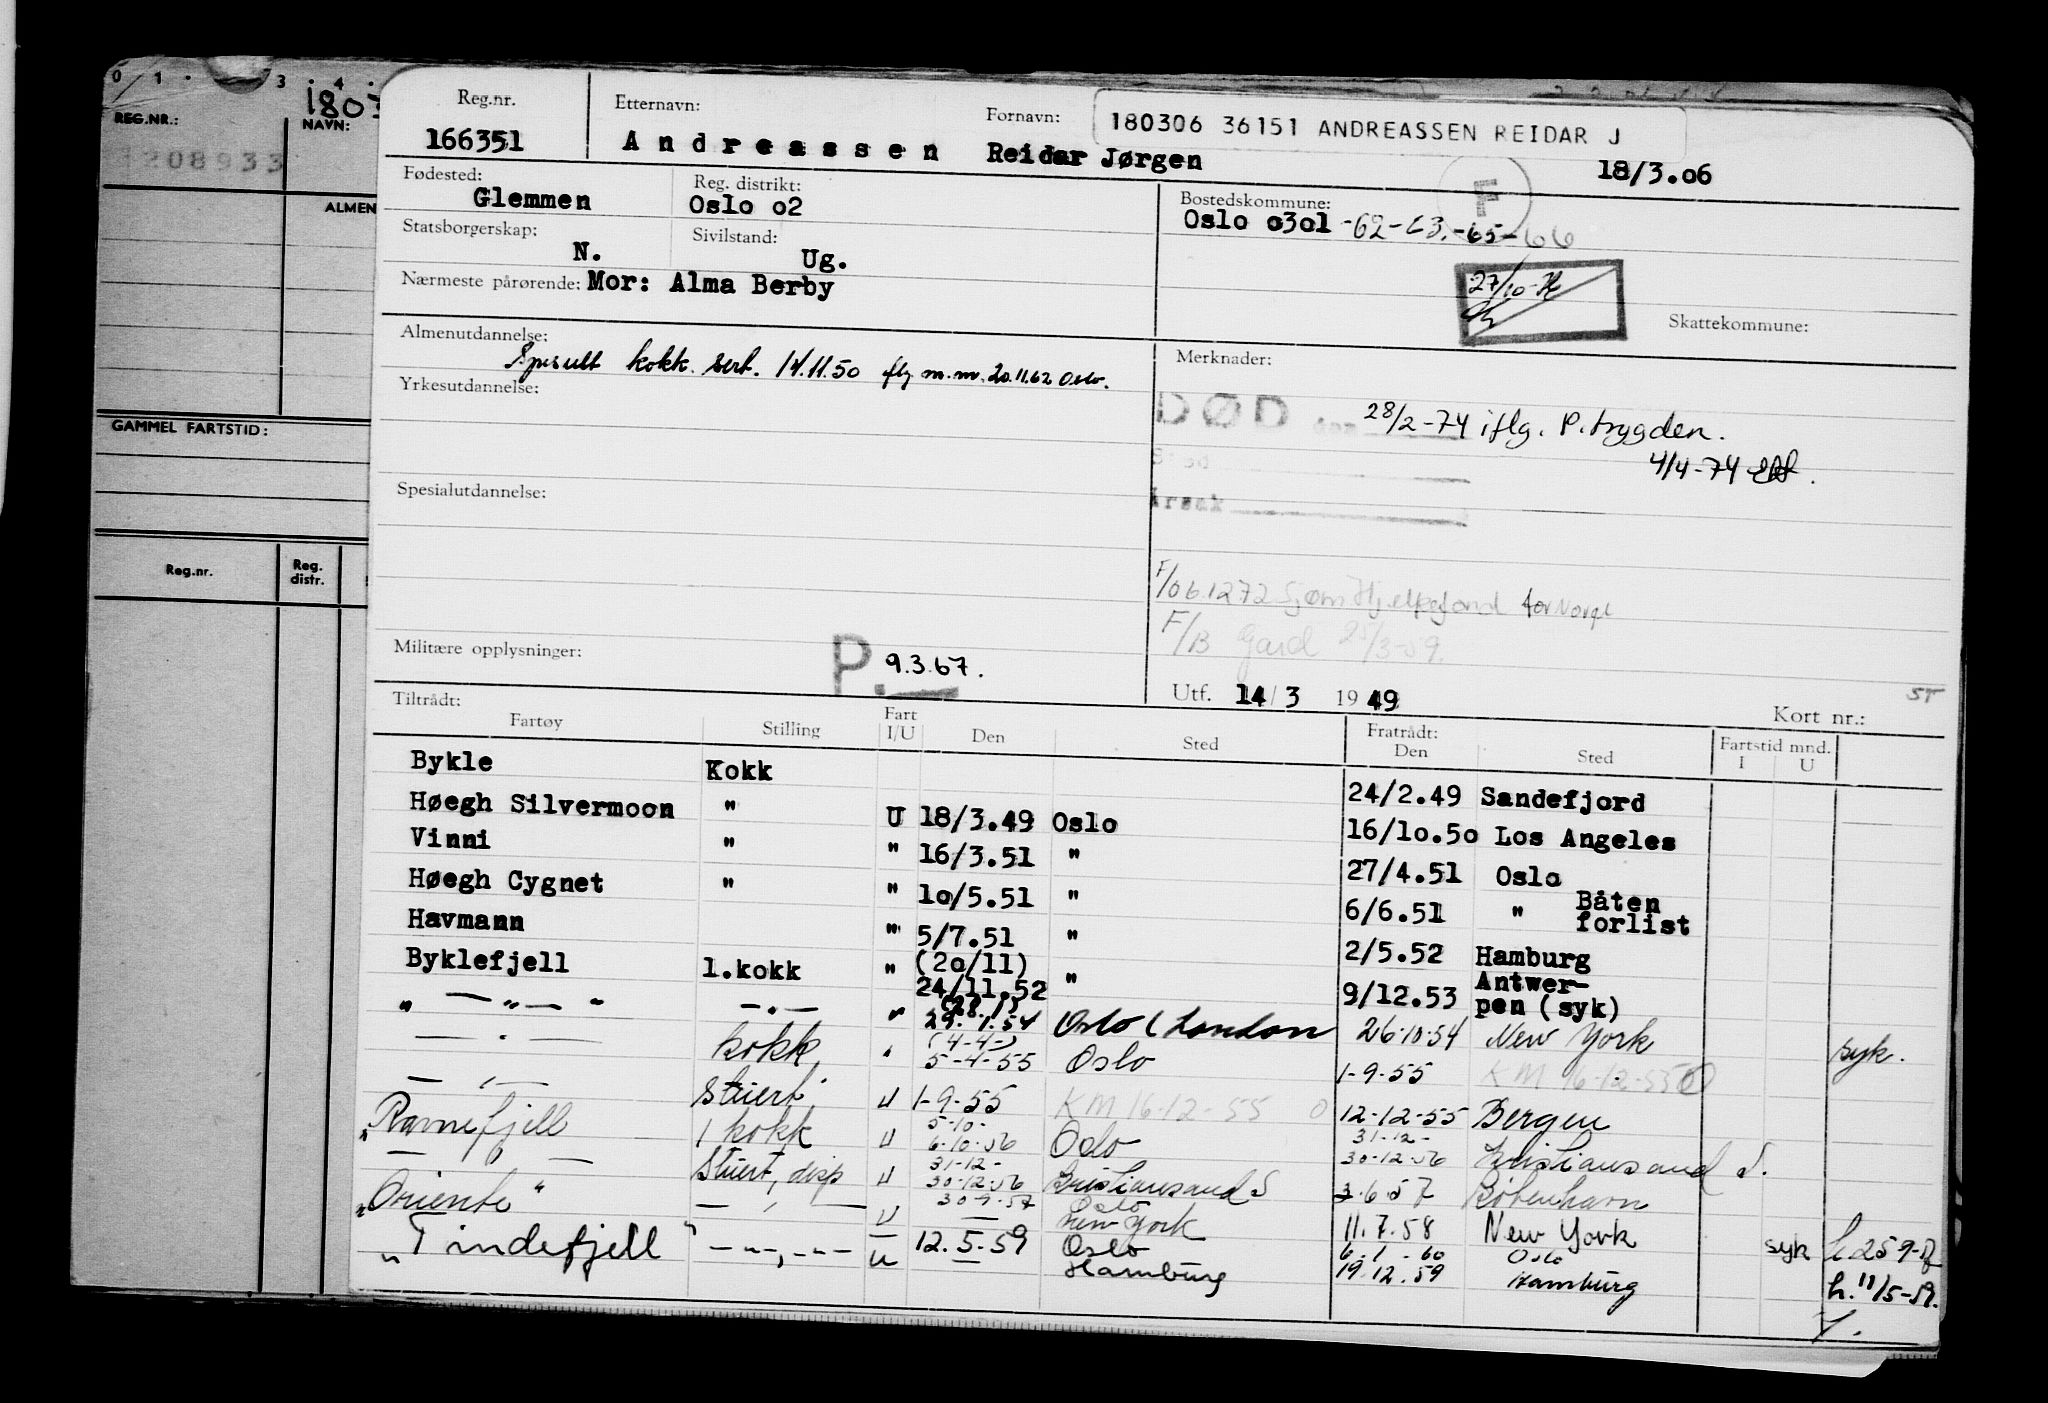 0 1 . 3 . 4 .
REG.NR.:
NAVN:
208933
ALMEN
GAMMEL FARTSTID:
Reg.nr.
Reg. distr.
Reg.nr.
166351
Etternavn:
Andreassen
Fornavn:
Reidar Jørgen
180306 36151 ANDREASSEN REIDAR J
18/3.06
Fødested:
Glemmen
Reg. distrikt:
Oslo o2
Bostedskommune:
Oslo o3o1 -62-63.-65-66
F
Statsborgerskap:
N.
Sivilstand:
Ug.
Nærmeste pårørende: Mor: Alma Berby
27/10-
Skattekommune:
Almenutdannelse:
kokk. sert. 14.11.50 flg m.m. 20.11.62 Oslo.
Yrkesutdannelse:
Merknader:
DØD den 28/2-74 iflg. P.trygden.
4/4-74
Sted
Årsak
Spesialutdannelse:
F/06.1272 Sjøm Hjelpefond for Norge
F/B Gard 25/3-59.
Militære opplysninger:
P. 9.3.67.
Utf. 14/3 1949
ST
Kort nr.:
Tiltrådt:
Fartøy Stilling Fart I/U Den Sted Fratrådt: Den Sted Fartstid mnd. I U
Bykle Kokk 24/2.49 Sandefjord
Høegh Silvermoon " U 18/3.49 Oslo 16/10.50 Los Angeles
Vinni " " 16/3.51 " 27/4.51 Oslo
Høegh Cygnet " " 10/5.51 " 6/6.51 " Båten forlist
Havmann " 5/7.51 " 2/5.52 Hamburg
Byklefjell 1.kokk " (20/11) 24/11.52 " 9/12.53 Antwerpen (syk)
" — " — " — " — " (28.1) 29.1.54 Oslo (London 26.10.54 New York syk.
— " — kokk " (4-4-) 5-4-55 Oslo 1-9-55 KM 16-12-55
— " — Stuert U 1-9-55 KM 16-12-55 0 12-12-55 Bergen
"Ravnefjell 1 kokk U 5-10- 6-10-56 Oslo 31-12- 30-12-56 Kristiansand S.
— " — Stuert, disp U 31-12- 30-12-56 Kristiansand S 3.6.57 København
"Oriente" — " — U 30-9-57 Oslo New York 11.7.58 New York syk h 25 9-57
"Tindefjell" — " — U 12.5.59 Oslo Hamburg 6.1.60 19.12.59 Oslo Hamburg h. 11/5-59.